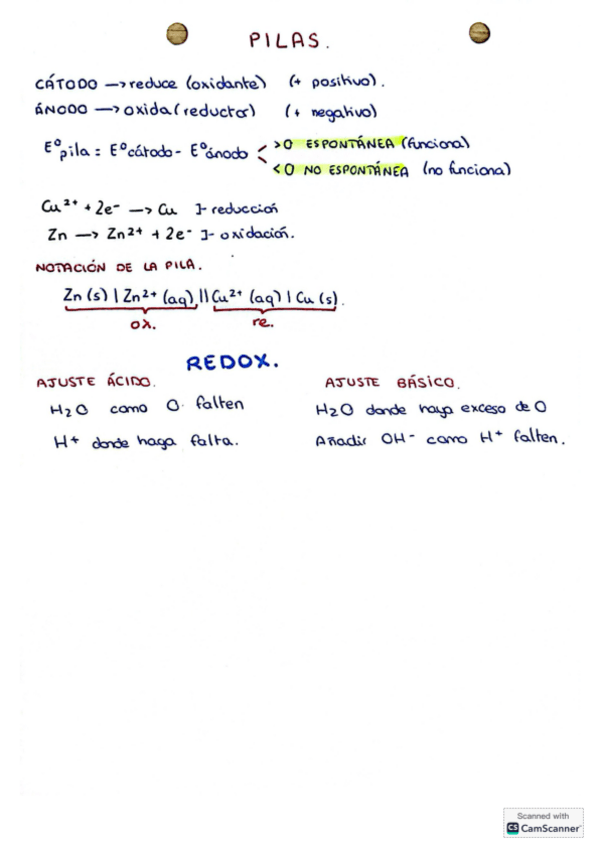 PILAS.
CÁTODO → reduce (oxidante) (+ positivo).
ÁNODO → oxida (reductor) (+ negativo)
E°pila = E°cátodo - E°ánodo < >0 ESPONTÁNEA (funciona)
<0 NO ESPONTÁNEA (no funciona)
Cu²⁺ + 2e⁻ → Cu }- reducción
Zn → Zn²⁺ + 2e⁻ }- oxidación.
NOTACIÓN DE LA PILA.
Zn (s) | Zn²⁺ (aq) || Cu²⁺ (aq) | Cu (s).
ox. re.
REDOX.
AJUSTE ÁCIDO.
H₂O como O falten
H+ donde haga falta.
AJUSTE BÁSICO.
H₂O donde haya exceso de O
Añadir OH⁻ como H⁺ falten.
Scanned with
CS CamScanner